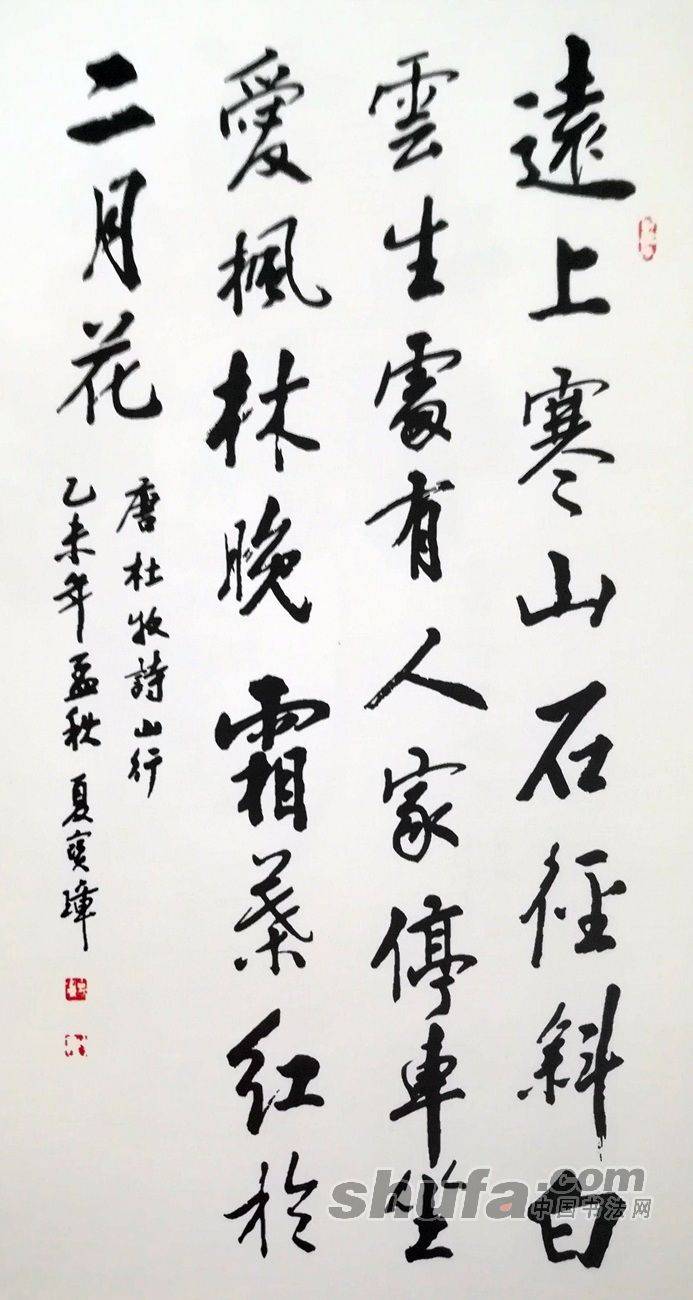 遠上寒山石徑斜白
雲生處有人家停車坐
愛楓林晚霜葉紅於
二月花
唐杜牧詩山行
乙未年孟秋夏寶璋
shufa.com
中国书法网